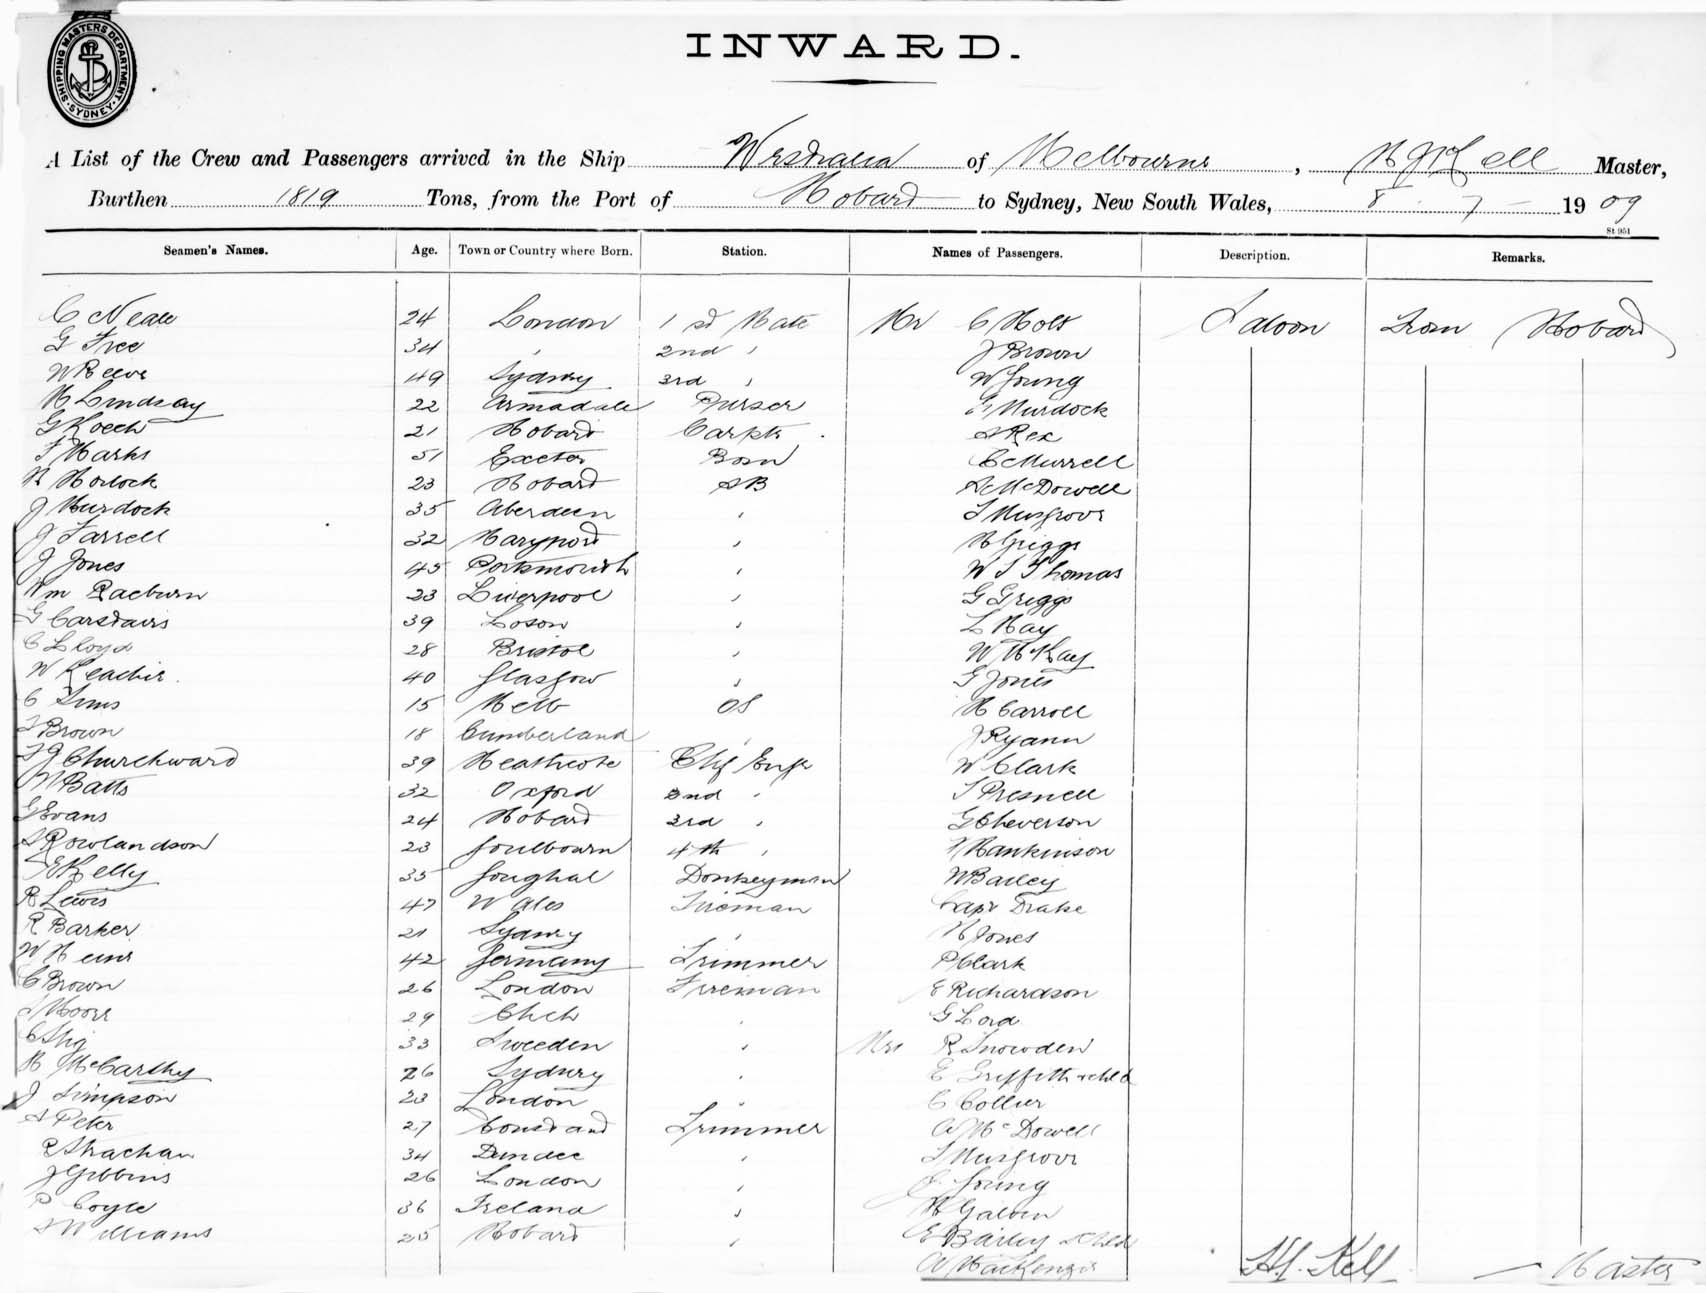 SHIPPING MASTERS DEPARTMENT
SYDNEY
INWARD.
A List of the Crew and Passengers arrived in the Ship Westralia of Melbourne, Kell Master,
Burthen 1819 Tons, from the Port of Hobart to Sydney, New South Wales, 8 . 7 - 1909
St 951
Seamen's Names. Age. Town or Country where Born. Station. Names of Passengers. Description. Remarks.
C Neale 24 London 1st Mate Mr C Holt Saloon From Hobart
G Free 34 " 2nd " J Brown
W Reeve 49 Sydney 3rd " W Young
H Lindsay 22 Armadale Purser Murdock
G Koech 21 Hobart Carptr. Rex
F Marks 51 Exeter Bosn C Murrell
Horlock 23 Hobart AB McDowell
J Murdock 35 Aberdeen " Musgrove
J Farrell 32 Maryport " H Griggs
J Jones 45 Portsmouth " Thomas
Wm Raeburn 23 Liverpool " G Griggs
G Carstairs 39 " L Hay
C Lloyd 28 Bristol " McKay
W 40 Glasgow " G Jones
C Sims 15 Melb OS H Carroll
Brown 18 Cumberland " J Ryann
Churchward 39 Heathcote Chf Engr W Clark
Batts 32 Oxford 2nd " Presnell
G Evans 24 Hobart 3rd " G Cheverton
Rowlandson 23 Goulbourn 4th " Hankinson
Kelly 35 Youghal Donkeyman W Bailey
R Lewis 47 Wales Fireman Capt Drake
R Barker 21 Sydney " H Jones
W 42 Germany Trimmer P Clark
C Brown 26 London Fireman E Richardson
Moore 29 ChCh " G Lord
C 33 Sweeden " Mrs R Snowden
McCarthy 26 Sydney " E Griffith & chld
J Simpson 23 London " C Collier
Peter 27 Trimmer A McDowell
Strachan 34 Dundee " Musgrove
J Gibbins 26 London " Young
P Coyle 36 Ireland " H Galvin
Williams 25 Hobart " E Bailey & chld
A MacKenzie Kell - Master